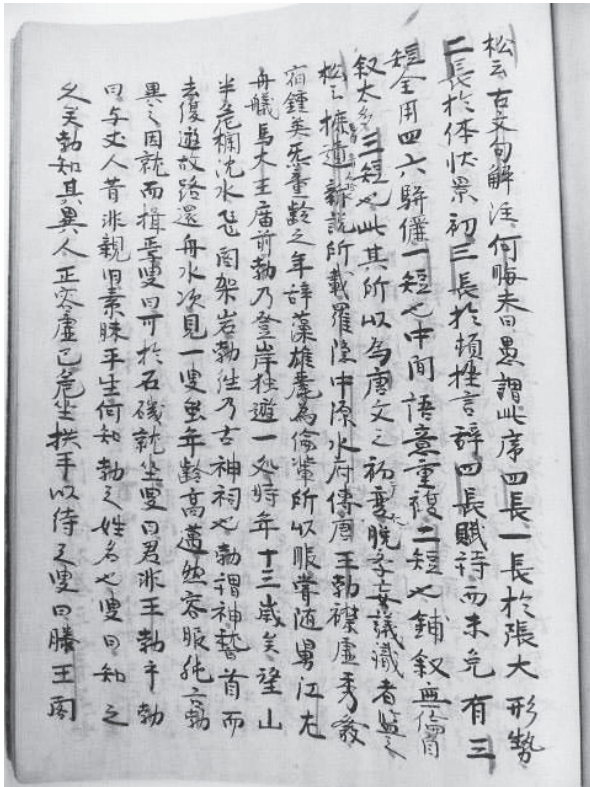 松云古文句解注何晦夫曰愚謂此序四長一長於張大形勢
二長於体状景初三長於頓挫言辞四長賦詩而未免有三
短全用四六駢儷一短也中間語意重複二短也鋪叙無倫
叙太多三短也此其所以為唐文之初変脱 議識者監之
松云摭遺新説所載羅隠中源水府傳唐王勃襟虚秀發
宿鍾英炁童齢之年辞藻雄 為倫輩所以服嘗随舅江左
舟艤馬大王庿前勃乃登岸独遊一処時年十三歳矣望山
半危欄沈水飛閣架岩勃徃乃古神祠也勃謂神稽首而
去復遊故路還舟水次見一叟 年齢高邁 容服純 勃
異之因就而揖焉叟曰可於石磯就坐叟曰君非王勃乎勃
曰与丈人昔非親旧素昧平生何知勃之姓名也叟曰知之
久矣勃知其異人正容虚己危坐拱手以侍之叟曰滕王閣